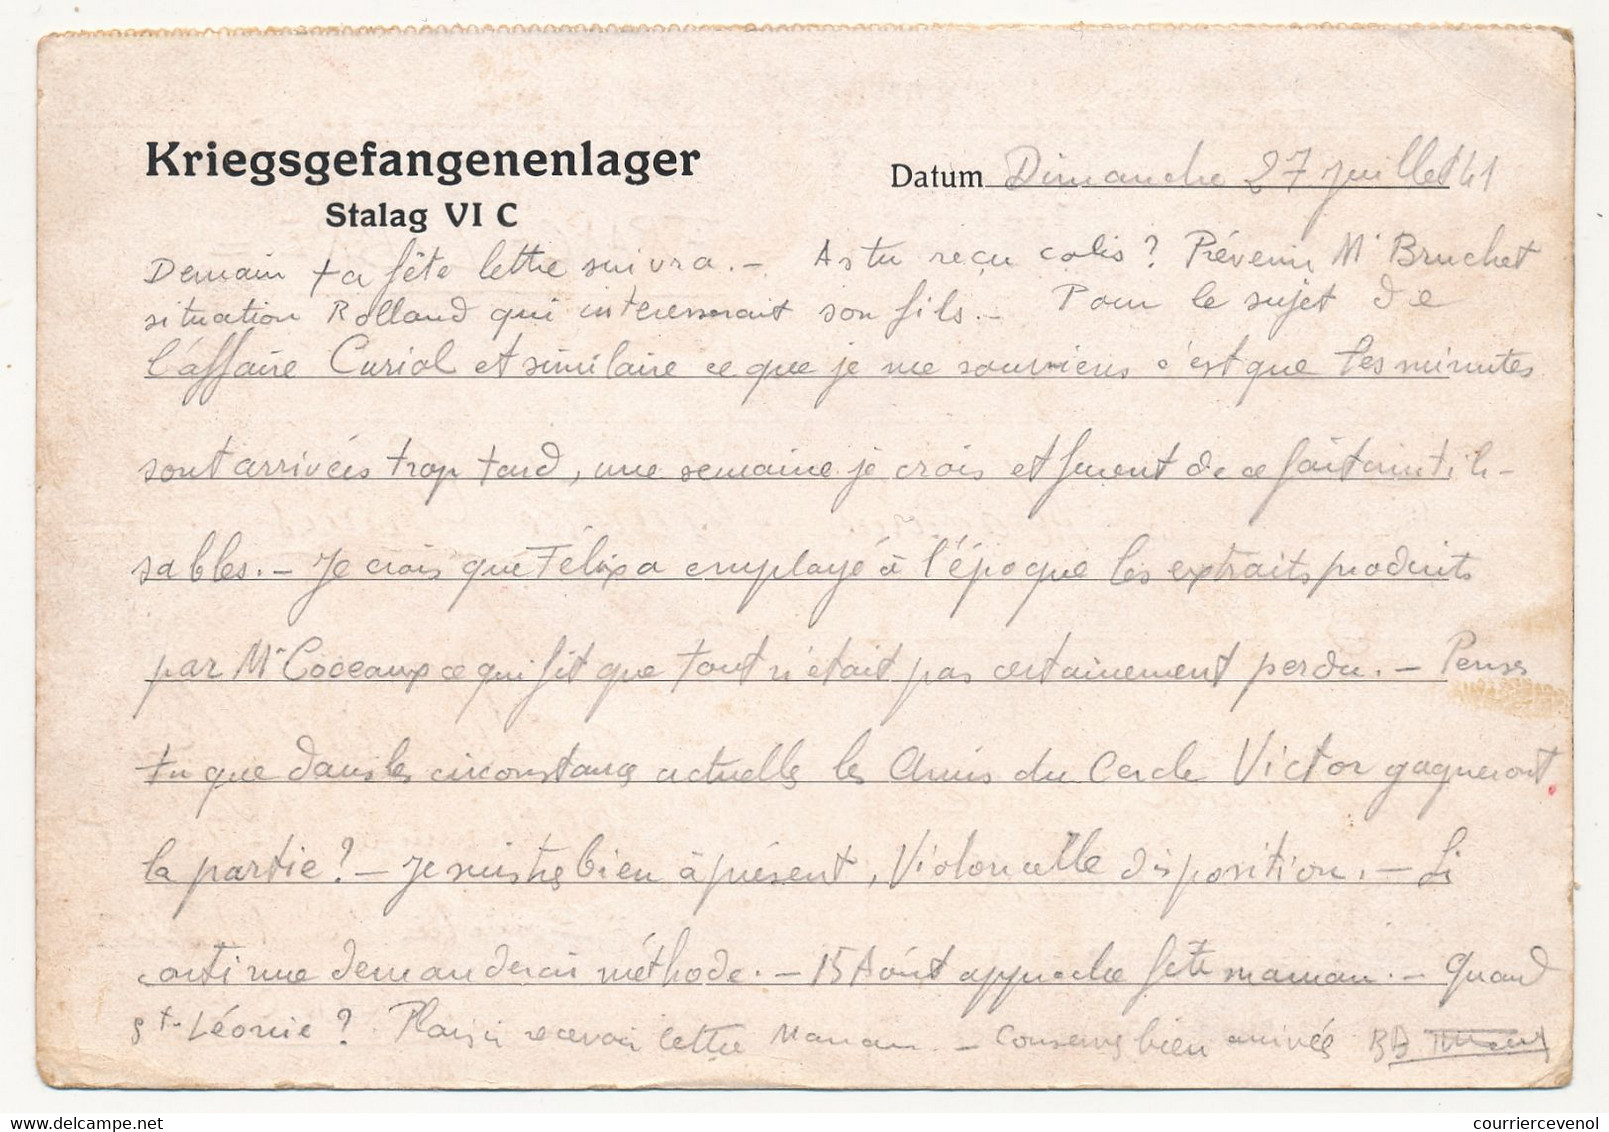 Kriegsgefangenenlager
Stalag VI C
Datum Dimanche 27 Juillet 41
Demain ta fête lettre suivra. — As tu reçu colis ? Prévenir Mr Bruchet
situation Rolland qui interesserait son fils. — Pour le sujet de
l'affaire Curiol et similaire ce que je me souviens c'est que les minutes
sont arrivées trop tard, une semaine je crois et furent de ce fait inutili-
sables. — Je crois que Félix a employé à l'époque les extraits produits
par Mr Coceaux ce qui fit que tout n'était pas certainement perdu. — Penses
tu que dans les circonstances actuelles les Amis du Cercle Victor gagneront
la partie ? — Je suis très bien à présent, Violoncelle disposition. — Si
continue demanderai méthode. — 15 Août approche fête maman. — Quand
St-Léonie ? Plaisir recevoir lettre Maman. — Conserves bien arrivés
courriercevenol
delcampe.net